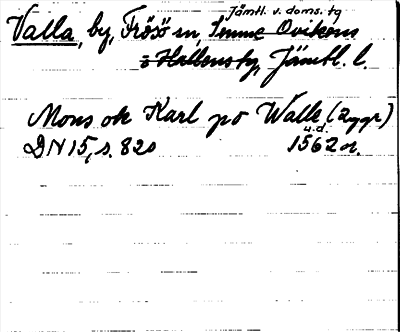 Jämtl. v. doms. tg
Valla, by, Frösö sn, Sunne Ovikens
o Hallens tg, Jämtl. l
Mons ok Karl po Walle (2ggr)
u.d.
DN 15, s. 820 1562